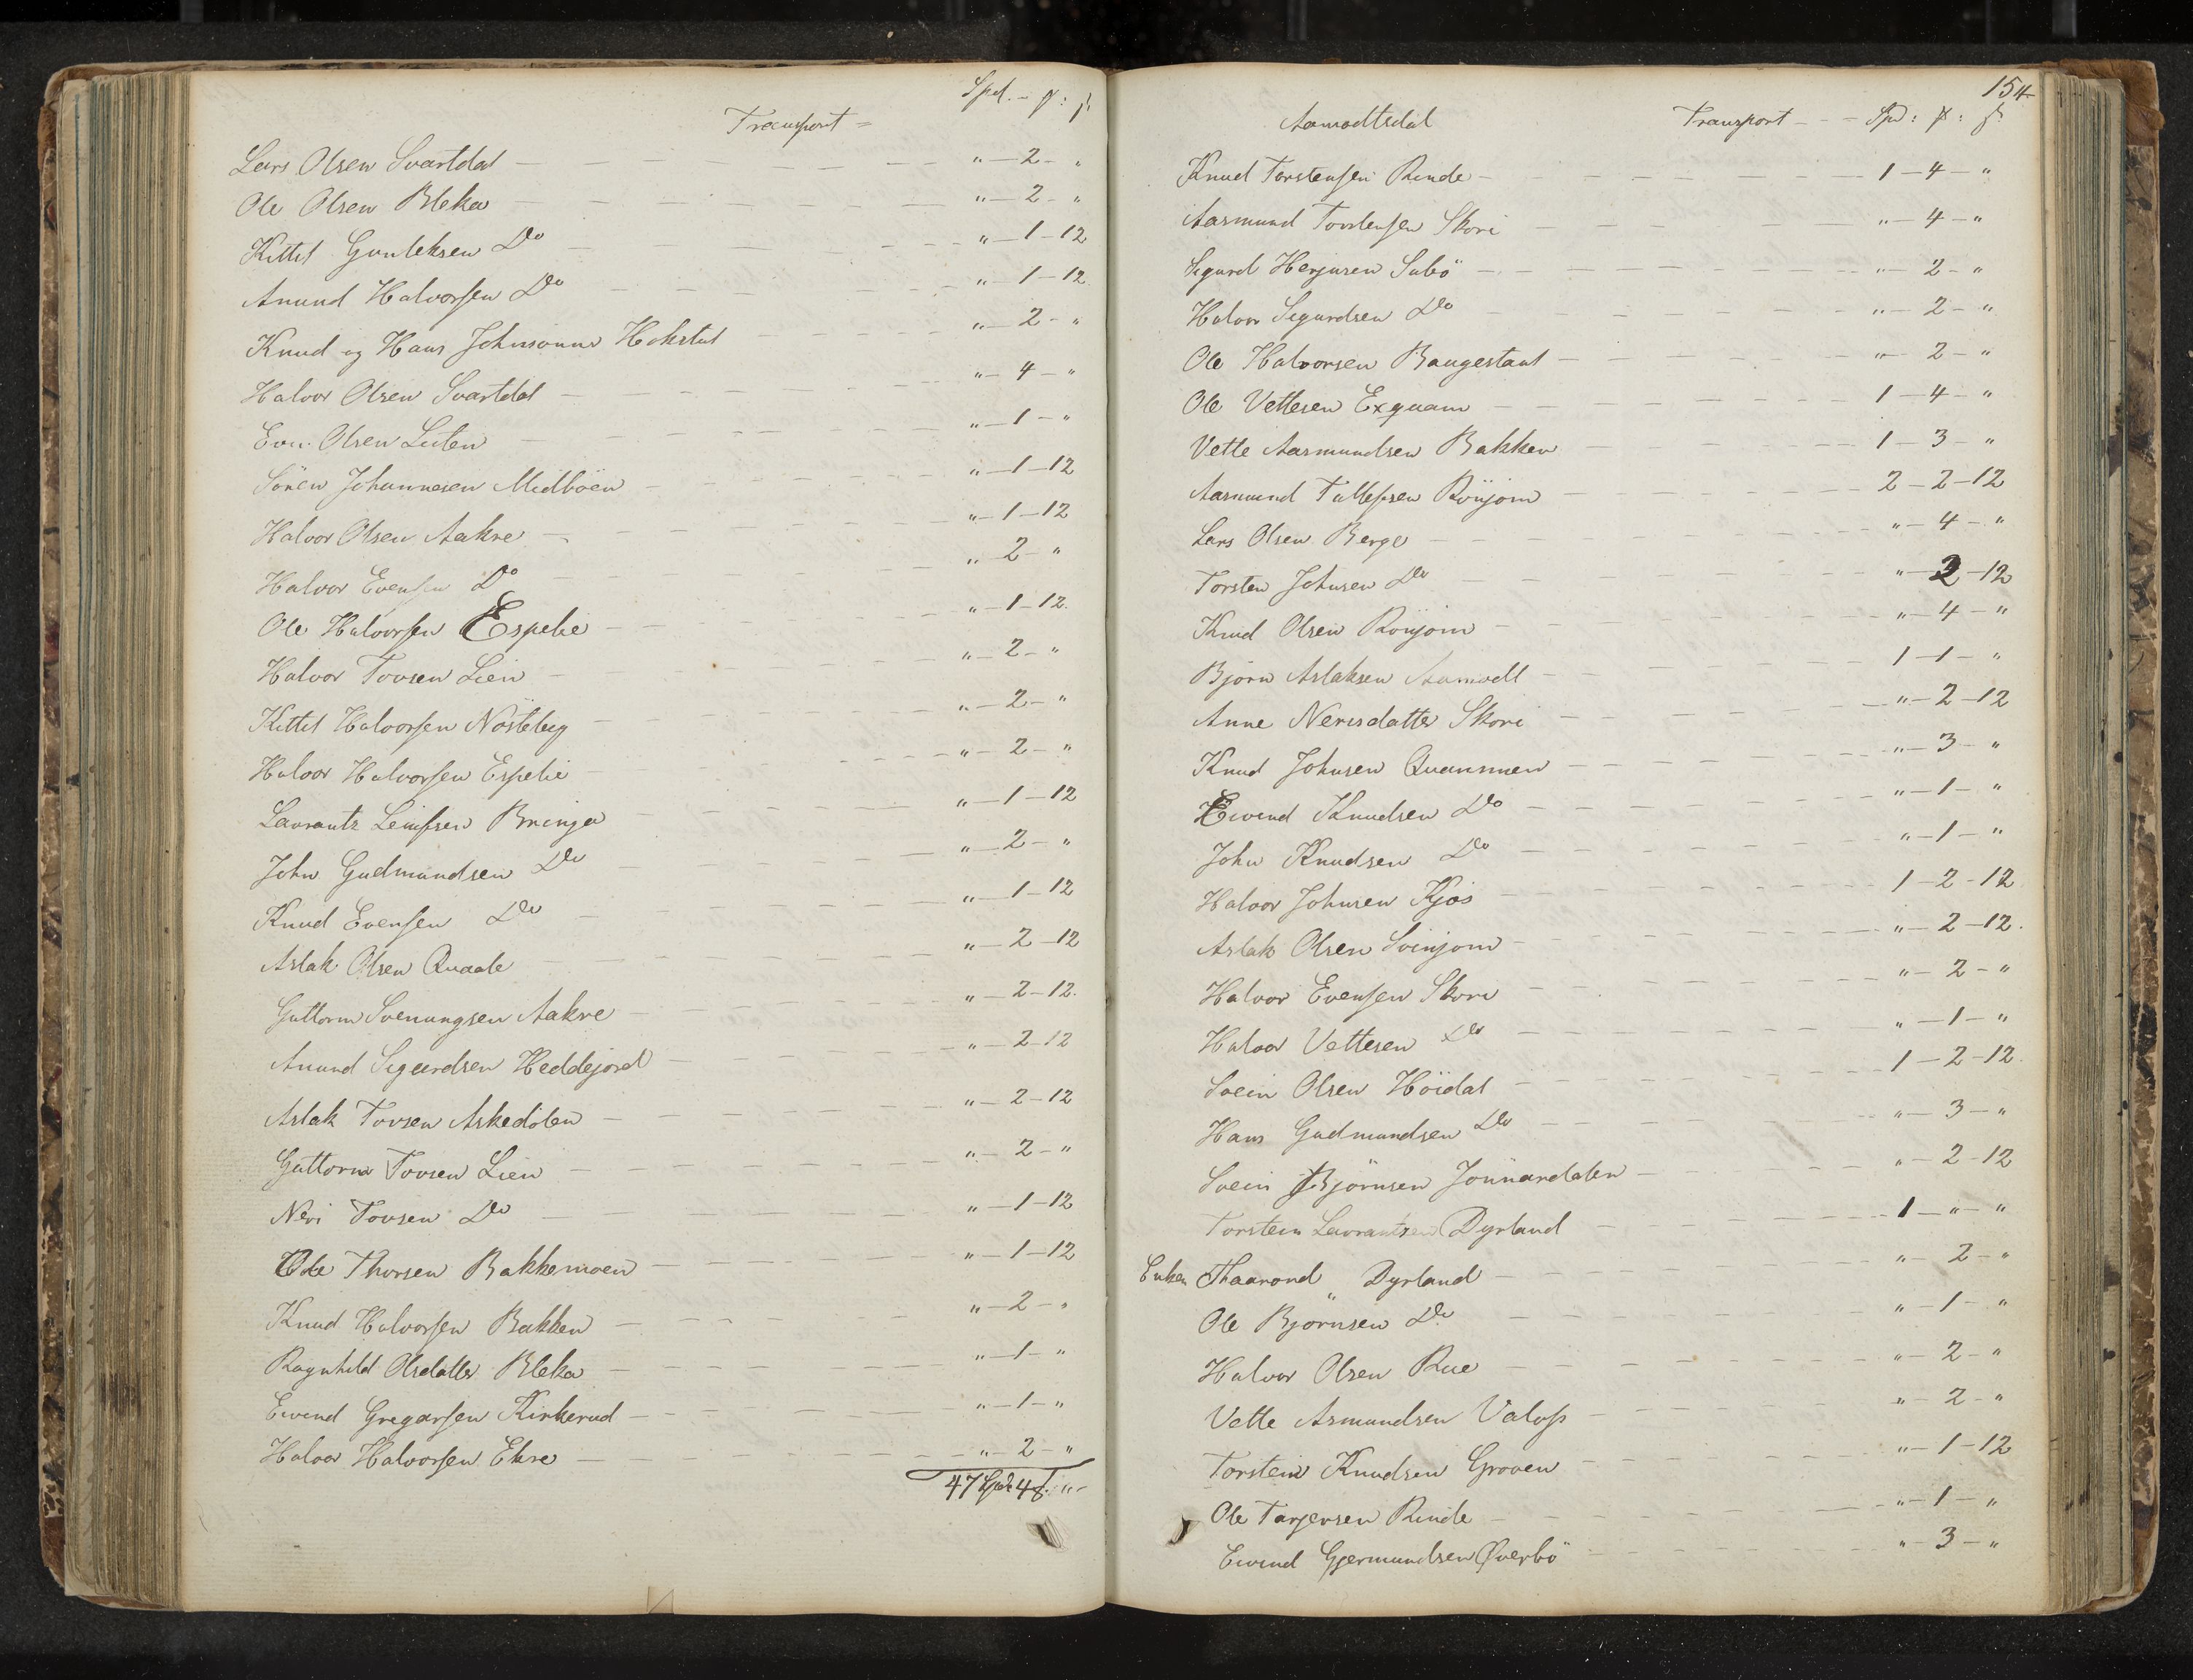 Spd. - ꝑ: ꞵ:
Transport =
Lars Olsen Svartdal — " — 2 - "
Ole Olsen Bleka — " — 2 - "
Kittil Gunleksen Do — " — 1 - 12
Anund Halvorsen Do — " — 1 - 12
Knud og Hans Johnsønner Hokstul — " — 2 - "
Halvor Olsen Svartdal — " — 4 - "
Even Olsen Luten — " — 1 - "
Sören Johannesen Midböen — " — 1 - 12
Halvor Olsen Aakre — " — 1 - 12
Halvor Evensen Do — " — 2 - "
Ole Halvorsen Espelie — " — 1 - 12.
Halvor Tovsen Lien — " — 2 - "
Kittil Halvorsen Nösteberg — " — 2 - "
Halvor Halvorsen Espelie — " — 2 - "
Lavrantz Leifsen Bringa — " — 1 - 12
John Gudmundsen Do — " — 2 - "
Knud Evensen Do — " — 1 - 12
Aslak Olsen Quaale — " — 2 - 12
Guttorm Svenungsen Aakre — " — 2 - 12.
Anund Sigurdsen Heddejord — " — 2 - 12
Aslak Tovsen Askedölen — " — 2 - 12
Guttorm Tovsen Lien — " — 2 - "
Neri Tovsen Do — " — 1 - 12
Ole Thorsen Bakkemoen — " — 1 - 12
Knud Halvorsen Bakken — " — 2 - "
Ragnhild Olsdatter Bleka — " — 1 - "
Eivind Gregarsen Kirkerud — " — 1 - "
Halvor Halvorsen Ekre — " — 2 - "
47 Spd 4 "
154
Aamodtsdal Transport - - - Spd: ꝑ: ꞵ:
Knud Torstensen Rinde — 1 - 4 - "
Aasmund Torstensen Skori — " - 4 - "
Sigurd Herjusen Subö — " - 2 - "
Halvor Sigurdsen Do — " - 2 - "
Ole Halvorsen Baugestaul — " - 2 - "
Ole Vettesen Exquam — 1 - 4 - "
Vette Aasmundsen Bakken — 1 - 3 - "
Aasmund Tallefsen Röijom — 2 - 2 - 12
Lars Olsen Berge — " - 4 - "
Torsten Johnsen Do — " - 2 - 12
Knud Olsen Röijom — " - 4 - "
Björn Aslaksen Aamodt — 1 - 1 - "
Anne Nerisdatter Skori — " - 2 - 12
Knud Johnsen Quammen — " - 3 - "
Eivind Knudsen Do — " - 1 - "
John Knudsen Do — " - 1 - "
Halvor Johnsen Kjos — 1 - 2 - 12
Aslak Olsen Svinjom — " - 2 - 12.
Halvor Evensen Skori — " - 2 - "
Halvor Vettesen Do — " - 1 - "
Svein Olsen Höidal — 1 - 2 - 12.
Hans Gudmundsen Do — " - 3 - "
Svein Björnsen Jönnardalen — " - 2 - 12
Torstein Lavrantsen Dyrland — 1 - " - "
Enken Thaarand " Dyrland — " - 2 - "
Ole Björnsen Do — " - 1 - "
Halvor Olsen Rue — " - 2 - "
Vette Asmundsen Valos — " - 2 - "
Torstein Knudsen Groven — " - 1 - 12
Ole Tarjersen Rinde — " - 1 - "
Eivind Gjermundsen Øverbö — " - 3 - "